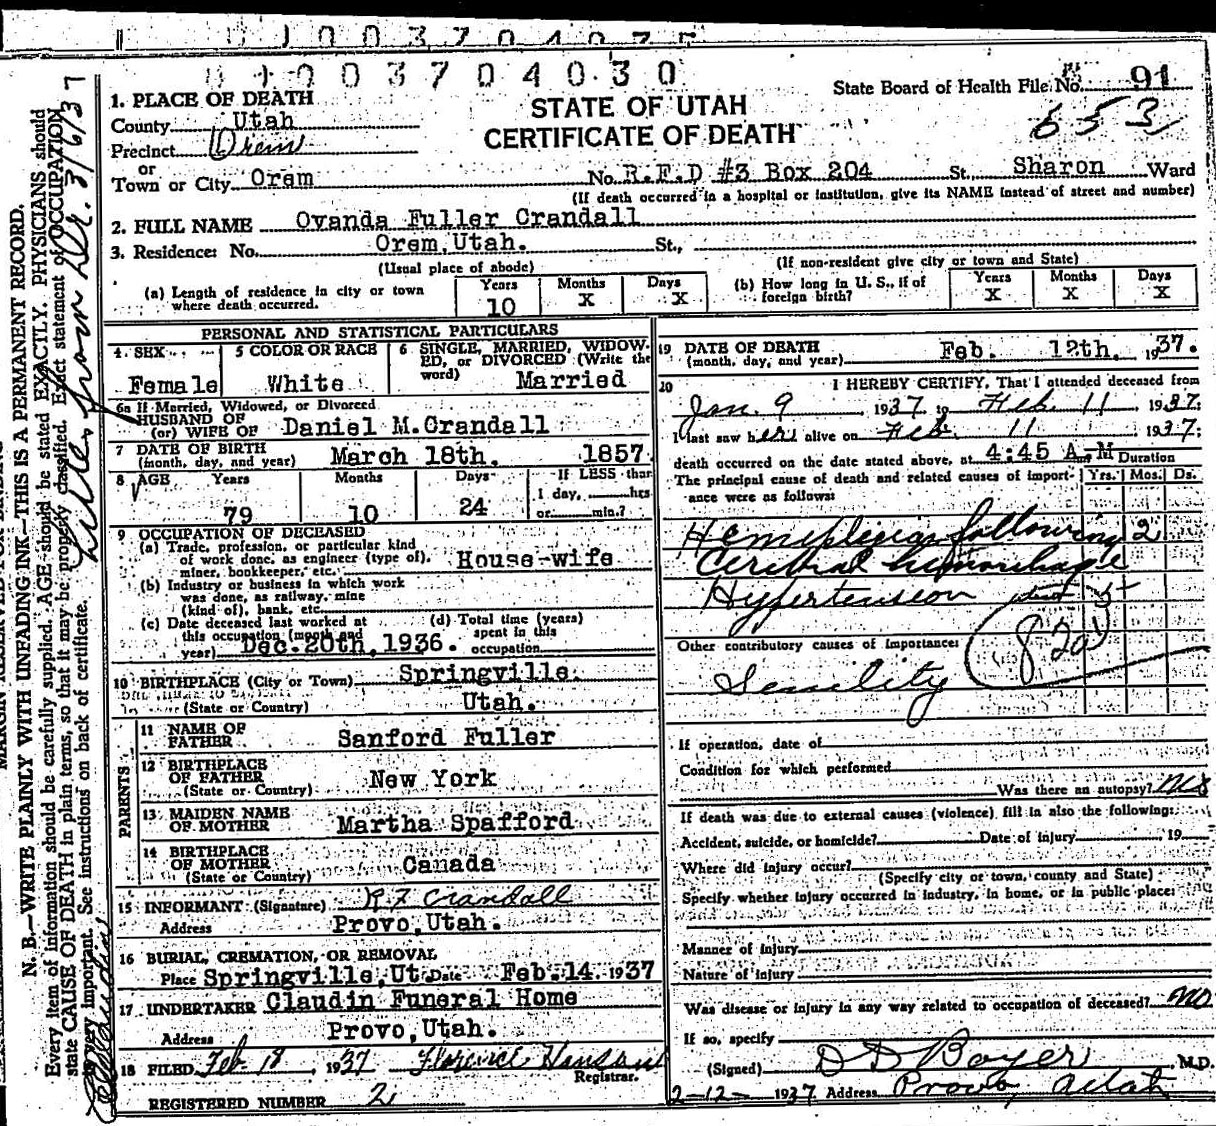 1003704030
State Board of Health File No. 91
653
STATE OF UTAH
CERTIFICATE OF DEATH
1. PLACE OF DEATH
County Utah
Precinct Orem
or
Town or City Orem No. R.F.D #3 Box 204 St. Sharon Ward
(If death occurred in a hospital or institution, give its NAME instead of street and number)
2. FULL NAME Ovanda Fuller Crandall
3. Residence: No. Orem, Utah. St.,
(Usual place of abode) (If non-resident give city or town and State)
(a) Length of residence in city or town where death occurred. Years 10 Months X Days X
(b) How long in U. S., if of foreign birth? Years X Months X Days X
PERSONAL AND STATISTICAL PARTICULARS
4. SEX Female
5 COLOR OR RACE White
6 SINGLE, MARRIED, WIDOWED, or DIVORCED (Write the word) Married
6a If Married, Widowed, or Divorced
HUSBAND OF
(or) WIFE OF Daniel M. Crandall
7 DATE OF BIRTH
(month, day, and year) March 18th. 1857
8 AGE Years 79 Months 10 Days 24
If LESS than
1 day, hrs
or min.?
9 OCCUPATION OF DECEASED
(a) Trade, profession, or particular kind
of work done, as engineer (type of),
miner, bookkeeper, etc. House-wife
(b) Industry or business in which work
was done, as railway, mine
(kind of), bank, etc.
(c) Date deceased last worked at
this occupation (month and
year) Dec. 20th, 1936.
(d) Total time (years)
spent in this
occupation
10 BIRTHPLACE (City or Town) Springville.
(State or Country) Utah.
PARENTS
11 NAME OF
FATHER Sanford Fuller
12 BIRTHPLACE
OF FATHER
(State or Country) New York
13 MAIDEN NAME
OF MOTHER Martha Spafford
14 BIRTHPLACE
OF MOTHER
(State or Country) Canada
15 INFORMANT (Signature) R F Crandall
Address Provo, Utah.
16 BURIAL, CREMATION, OR REMOVAL
Place Springville, Ut. Date Feb. 14. 1937
17 UNDERTAKER Claudin Funeral Home
Address Provo, Utah.
18 FILED Feb 18, 1937 Florence
Registrar.
REGISTERED NUMBER 2
19 DATE OF DEATH
(month, day, and year) Feb. 12th. 1937.
20 I HEREBY CERTIFY, That I attended deceased from
Jan. 9, 1937 to Feb. 11, 1937.
I last saw her alive on Feb. 11 1937;
death occurred on the date stated above, at 4:45 A.M
Duration
The principal cause of death and related causes of importance were as follows: Yrs. Mos. Ds.
Hemiplegia following 2
Cerebral hemorrhage
Hypertension 5+
82a
Other contributory causes of importance:
Senility
If operation, date of
Condition for which performed
Was there an autopsy? No
If death was due to external causes (violence) fill in also the following:
Accident, suicide, or homicide? Date of injury 19
Where did injury occur?
(Specify city or town, county and State)
Specify whether injury occurred in industry, in home, or in public place:
Manner of Injury
Nature of Injury
Was disease or injury in any way related to occupation of deceased? No
If so, specify
(Signed) D D Boyer M.D.
2-12- 1937 Address Provo, Utah
N. B.—WRITE PLAINLY WITH UNFADING INK—THIS IS A PERMANENT RECORD.
Every item of information should be carefully supplied. AGE should be stated EXACTLY. PHYSICIANS should
state CAUSE OF DEATH in plain terms, so that it may be properly classified. Exact statement of OCCUPATION
is very important. See instructions on back of certificate.